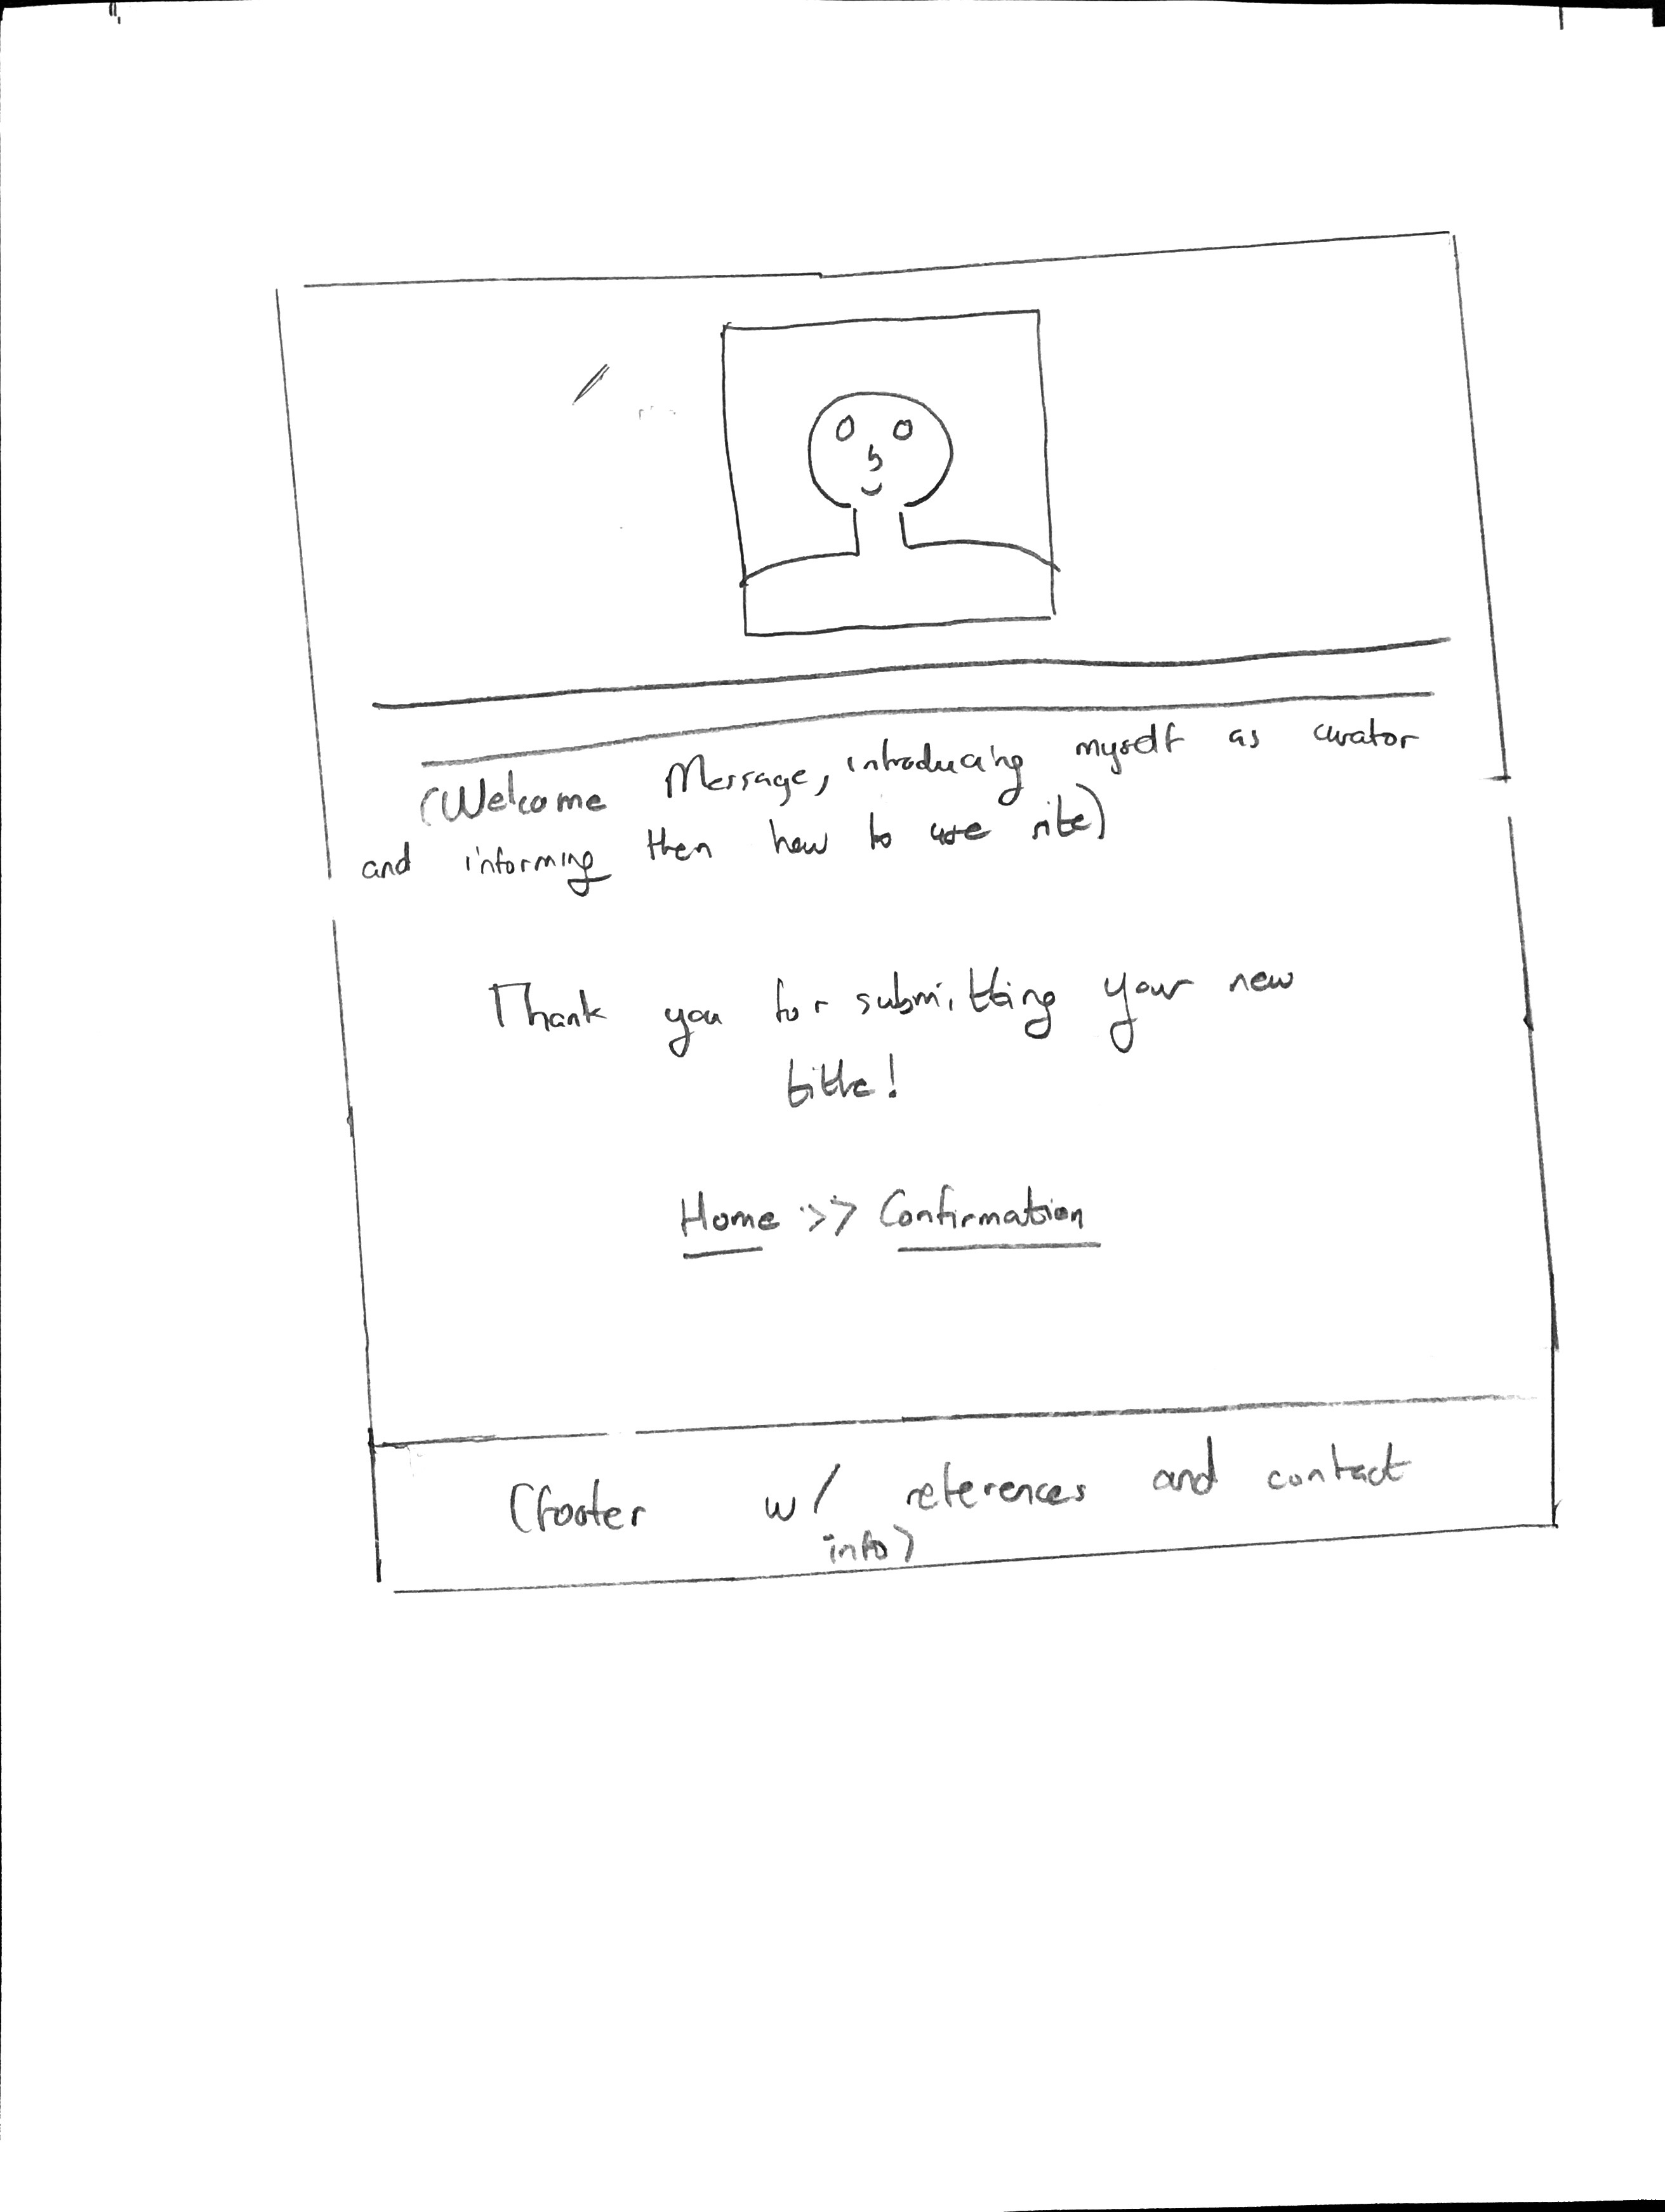 (Welcome Message, introducing myself as curator
and informing then how to use site)
Thank you for submitting your new
title!
Home >> Confirmation
(footer w/ references and contact
info)